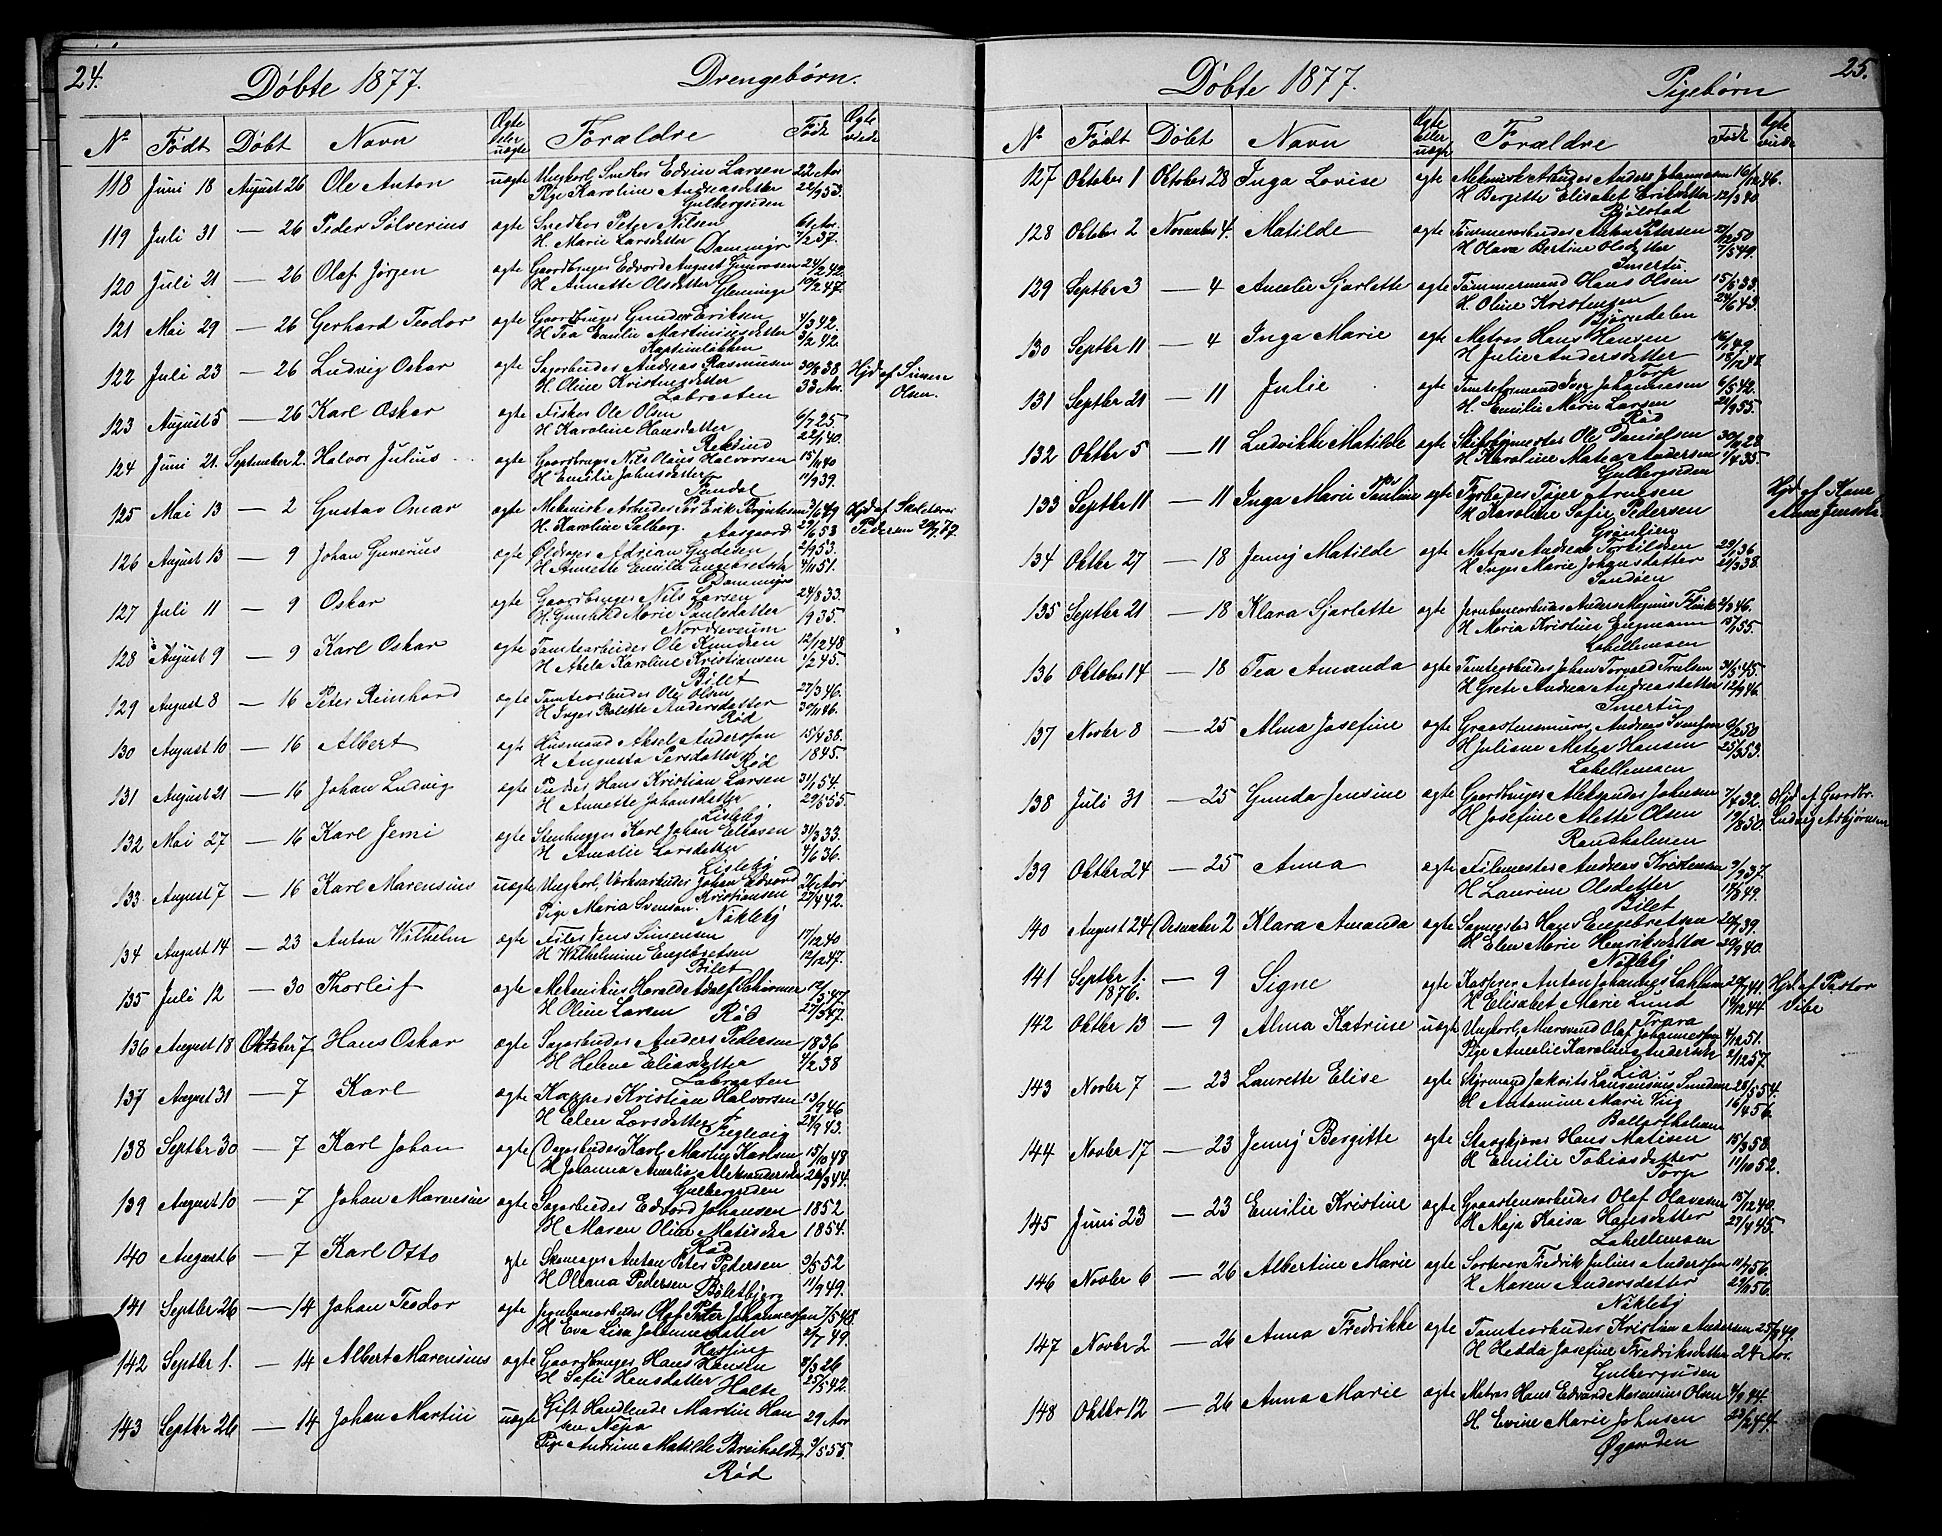 24.
Døbte 1877. Drengebørn.
Nº Født Døbt Navn Ægte eller uægte Forældre Født Ægte viede
118 Juni 18 August 26 Ole Anton uægte Ungkarl, Snedker Edvin Larsen 22 Aar
Pige Karoline Andreasdatter 22/9 53.
Gulbergsiden
119 Juli 31 — 26 Peder Sølverius ægte Snedker Peter Nilsen
H. Marie Larsdatter 7/2 37.
Dammyr
120 Juli 21 — 26 Olaf Jørgen ægte Gaardbruger Edvard August 24/2 42.
H Annette Olsdatter 10/2 47.
Glemminge
121 Mai 29 — 26 Gerhard Teodor ægte Gaardbruger Gunder Eriksen 4/3 42.
H Tea Emilie Martiniusdatter 3/2 42.
Kaptinløkken
122 Juli 23 — 26 Ludvig Oskar ægte Sagarbeider Andreas Rasmussen 30/8 38 Hjd af Simen
H Oline Kristinesdatter 33 Aar. Olsen.
Labraaten
123 August 5 — 26 Karl Oskar ægte Fisker Ole Olsen 6/7 25
H Karoline Hansdatter 22/1 40.
124 Juni 21. September 2. Halvor Julius ægte Gaardbruger Nils Olaus Halvorsen 15/11 40
H Emilie Johnsdatter 11/9 39.
125 Mai 13 — 2 Gustav Omar ægte Mekanisk Arbeider Per Erik 3/6 49 Hjd af
H. Karoline Solberg. 29/6 53 Pedersen
Aasgaard
126 August 13 — 9 Johan Gunerius ægte Adrian Gudesen 2/9 53.
H Annette Emilie Engebretsda 4/11 51.
Dammyr
127 Juli 11 — 9 Oskar ægte Gaardbruger Nils Larsen 24/8 33.
H. Gunhild Marie Paulsdatter 19 35.
128 August 9 — 9 Karl Oskar ægte Tomtearbeider Ole Knudsen 12/12 48
H Karoline Kristiansen 1/2 45.
Bilet
129 August 8 — 16 Peter Reinhard ægte Tomtearbeider Ole Olsen 27/3 46.
H Inger Bolette Andersdatter 30/11 46.
Rød
130 August 10 — 16 Albert ægte Husmand Aksel Andersson 15/4 38.
H Augusta Persdatter 1845.
Rød
131 August 21 — 16 Johan Ludvig ægte Hans Kristian Larsen 31/1 54.
H Annette Johansdatter 29/6 55.
Lisleby
132 Mai 27 — 16 Karl Jemi ægte Stenhugger Karl Johan Eliasen 31/3 33.
H Amalie Larsdatter 4/6 36.
Lisleby
133 August 7 — 16 Karl Marensius uægte Ungkarl, Værksarbeider Johan Edvard Kristiansen 26 Aar
Pige Maria Svenson. 27/4 42.
Nøkleby
134 August 14 — 23 Anton Vilhelm ægte Filer Jens Simensen 17/12 40
H Wilhelmine Engebretsen 12/12 47.
Bilet
135 Juli 12 — 30 Thorleif ægte Mekanikus Harald Adolf
H Oline Larsen 27/5 47.
Rød
136 August 18 Oktober 7 Hans Oskar ægte Sagarbeider Anders Pedersen 1836
H Helene Eliasdatter 4/2 38
Labraaten
137 August 31 — 7 Karl ægte Kapper Kristian Halvorsen 13/9 46
H Elen Larsdatter 21/9 43.
Teglevig
138 Septbr 30 — 7 Karl Johan ægte Dagarbeider Karl Martin Karlsen 15/10 48
H Johanna Amalia Aleksandersda 26/3 44.
Gulbergsiden
139 August 10 — 7 Johan Marensius ægte Sagarbeider Edvard Johansen 1852
H Maren Oline Matisda 1854.
Rød
140 August 6 — 7 Karl Otto ægte Skomager Anton Peter Pedersen 9/5 52
H Oleana Pedersen 11/9 49.
141 Septbr 26 — 14 Johan Teodor ægte Jernbanearbeider Olaf Peter Johannesson 7/5 48.
H Eva Lisa Johannesdatter 6/7 49.
142 Septbr 1. — 14 Albert Marensius ægte Gaardbruger Hans Hansen 8/3 26
H Sofie Hansdatter 25/5 42.
Holte
143 Septbr 26 — 14 Johan Martin uægte Gift Handlende Martin Han 29 Aar
sen Nøpa
Pige Andrine Matilde Breiholdt 9/5 55.
Rød
25.
Døbte 1877. Pigebørn
Nº Født Døbt Navn Ægte eller uægte Forældre Født Ægte viede
127 Oktober 1 Oktober 28 Inga Lovise ægte Mekanisk Arbeider Anders Johannesen 16/12 46.
H Bergitte Elisabet Eriksdatter 12/3 40.
128 Oktober 2 November 4. Matilde ægte Tømmerarbeider Anton Petersen
H Olava Bertine Olsdatter 7/5 49.
Smertu
129 Septbr 3 — 4 Amalie Sjarlotte ægte Tømmermand Hans Olsen 15/6 33.
H. Oline Kristensen 29/6 43.
Bjørnedalen
130 Septbr 11 — 4 Inga Marie ægte Matros Hans Hansen 16/1 49
H Julie Andersdatter 18/12 48.
Torp
131 Septbr 21 — 11 Julie ægte Tomteformand Johannesen 6/5 42.
H. Emilie Marie Larsen 21/9 55.
Rød
132 Oktbr 5 — 11 Ludvikke Matilde ægte Skibstømmermand Ole Danielsen 30/4 28
H Karoline Matea Andersen 1/4 35.
Gulbergsiden
133 Septbr 11 — 11 Inga Marie Pauline ægte Fyrbøder Tøger Arnesen Hjd af Kone
H Karoline Sofie Pedersen Anne
Grønlien
134 Oktbr 27 — 18 Jenny Matilde ægte Matros Andreas Torkildsen 29/1 36.
H Inger Marie Johansdatter 21/3 38.
Sandøen
135 Septbr 21 — 18 Klara Sjarlotte ægte Jernbanearbeider Anders Magnus Flink 2/3 46.
H Maria Kristina Engmann 15/1 55.
Labellemoen
136 Oktober 14 — 18 Tea Amanda ægte Tomtearbeider Johan Torvald Trulsen 31/5 45.
H Grete Andrea Andreasdatter 12/9 46.
Smertu
137 Novbr 8 — 25 Alma Josefine ægte Graastensmurer Andreas Svenson 9/2 50
H Juliane Matea Hansen 25/2 53.
Labellemoen
138 Juli 31 — 25 Gunda Jensine ægte Gaardbruger Aleksander Johnsen 7/4 32. Hjd af Gaardbr.
H Josefine Alette Olsen 19/8 50. Ludvig Asbjørnsen
Rauskolmen
139 Oktbr 24 — 25 Anna ægte Filemester Andreas Kristensen 9/9 37.
H Laurine Olsdatter 17/8 49.
Bilet
140 August 24 December 2 Klara Amanda ægte Sagmester Hans Engebretsen 20/7 39.
H Elen Marie Henriksdatter 29/9 40.
Nøkleby
141 Septbr 1. — 9 Signe ægte Kasserer Anton Johannes 28/7 41. Hjd af Pastor
1876. H Elisabet Marie Lund 14/12 44 Vibe
Trara
142 Oktbr 13 — 9 Alma Katrine uægte Ungkarl, Mursvend Olaf Johannesson 4/12 51.
Pige Amalie Karoline Andersda 2/12 57.
Lia
143 Novbr 7 — 23 Laurette Elise ægte Styrmand Jakob Laurensius 28/5 54.
H Antomine Marie Vig 16/4 56.
144 Novbr 17 — 23 Jenny Bergitte ægte Skogkjører Hans Matisen 15/3 53.
H Emilie Tobiasdatter 11/10 52.
Torp
145 Juni 23 — 23 Emilie Kristine ægte Graastensarbeider Olaf Olavesen 15/12 40.
H Maja Kaisa Hansdatter 27/9 45.
Labellemoen
146 Novbr 6 — 26 Albertine Marie ægte Fredrik Julius Andersson 11/7 56
H Maren Andersdatter 29/11 56.
Nøkleby
147 Novbr 2 — 26 Anna Fredrikke ægte Tomtearbeider Kristian Andersen 25/3 49.
H Hedda Josefine Fredriksdatter 24 Aar.
Gulbergsiden
148 Oktbr 12 — 26 Anna Marie ægte Matros Hans Edvard Marensius Olsen 4/9 44.
H. Evine Marie Johnsen 23/2 44.
Øgarden